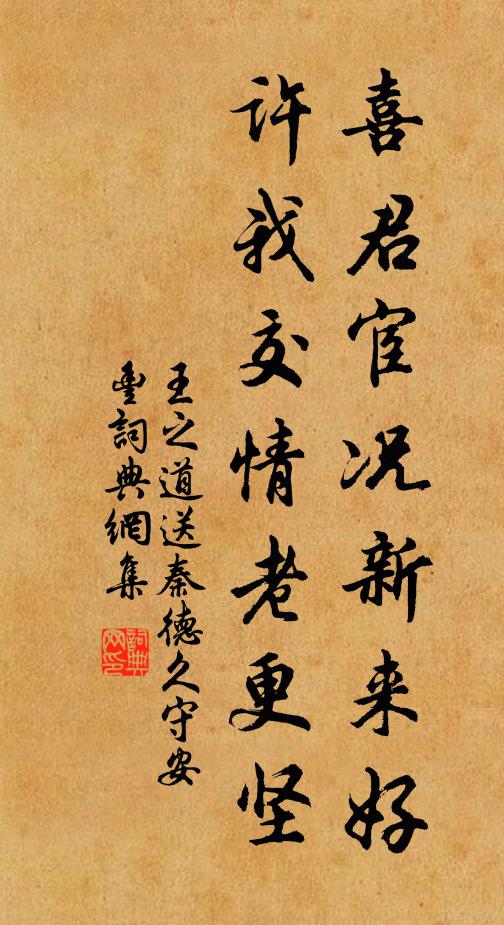 喜君宦况新来好
许我交情老更坚
王之道送秦德久守安
豐詞典網集
詞典
网印